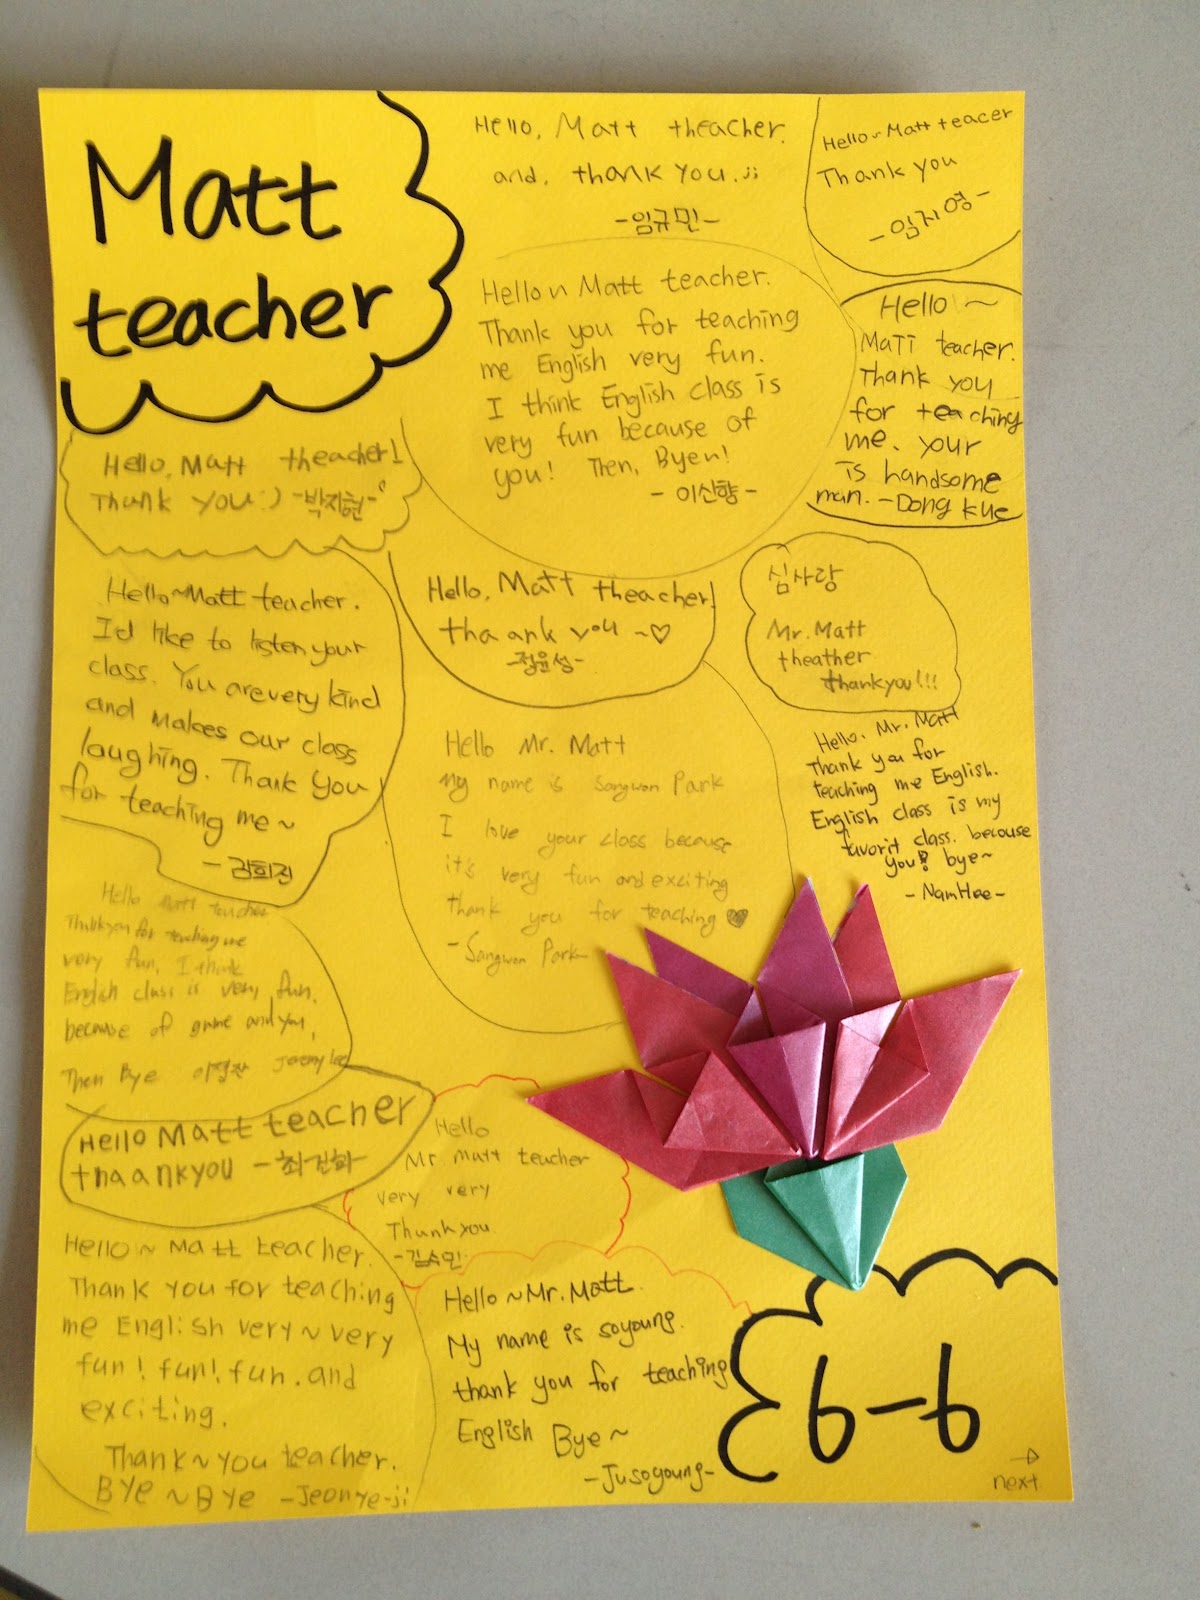 Matt
teacher
Hello, Matt theacher.
and. thank you.ü
-임규민-
Hello~Matt teacer
Thank you
-임지영-
Hello~ Matt teacher.
Thank you for teaching
me English very fun.
I think English class is
very fun because of
you! Then, Bye~!
-이신향-
Hello ~
Matt teacher.
Thank you
for teaching
me. your
is handsome
man. -Dong kue
Hello, Matt theacher!
Thank you:) -박지현-
Hello~Matt teacher.
I'd like to listen your
class. You are very kind
and makes our class
laughing. Thank you
for teaching me~
-김희진
Hello, Matt theacher!
thaank you ~♡
-정윤성-
심사랑
Mr. Matt
theather
thankyou!!!
Hello Mr. Matt
My name is Sangwon Park
I love your class because
it's very fun and exciting
thank you for teaching ♥
-Sangwon Park-
Hello, Mr. Matt
Thank you for
teaching me English.
English class is my
favorit class. because
you!! bye~
-NamHee-
Hello Matt teacher
Thankyou for teaching me
very fun, I think
English class is very fun.
because of game and you,
Then Bye Jeremy lee
Hello Matt teacher
thaankyou -최진화-
Hello
Mr. Matt teacher
very very
Thank you
-김수민-
Hello ~ Matt teacher.
Thank you for teaching
me English very~very
fun! fun! fun. and
exciting.
Thank~you teacher.
Bye ~ Bye -Jeonye-ji
Hello ~Mr. Matt.
My name is soyoung.
thank you for teaching
English Bye~
-Jusoyoung-
6-6
→
next